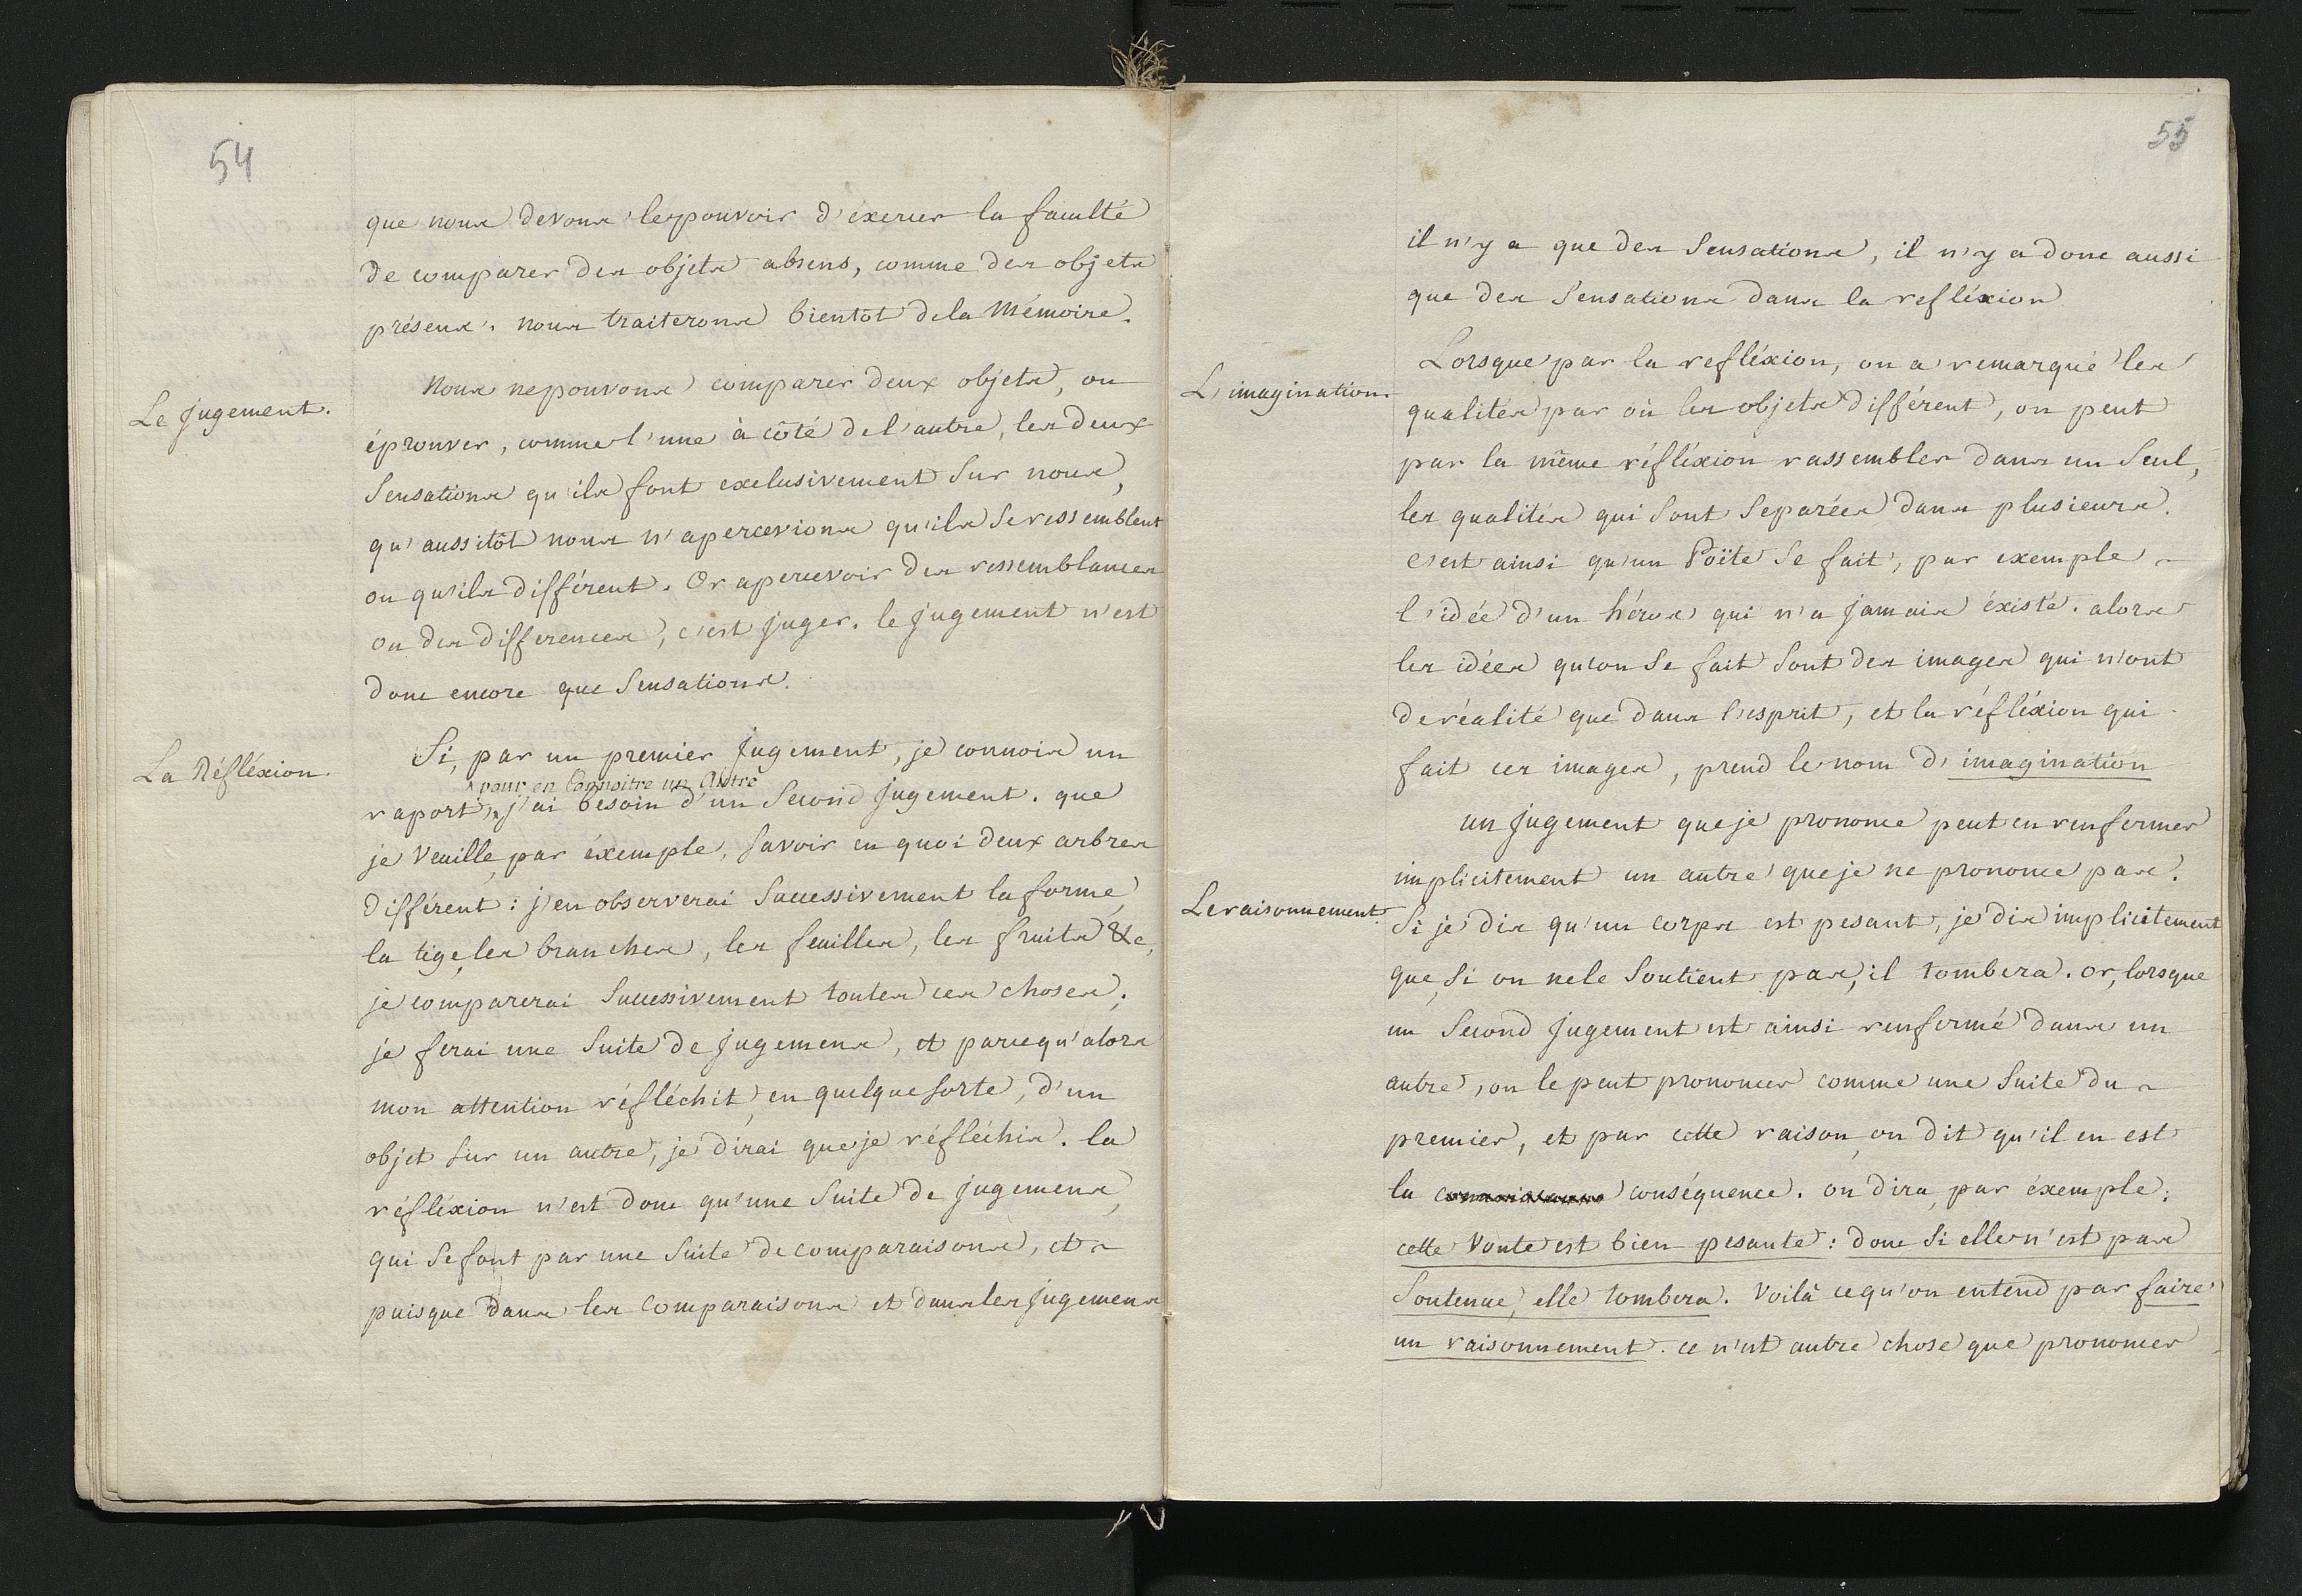 54
que nous devons le pouvoir d'éxercer la faculté
de comparer des objets absens, comme des objets
présens. nous traiterons bientôt de la Mémoire.
Le Jugement.
Nous ne pouvons comparer deux objets, ou
éprouver, comme l'une à côté de l'autre, les deux
Sensations qu'ils font exclusivement Sur nous,
qu'aussitôt nous n'apercevions qu'ils Se ressemblent
ou qu'ils différent. Or apercevoir des ressemblances
ou des differences, c'est Juger. le Jugement n'est
donc encore que Sensations.
La Réfléxion.
Si, par un premier Jugement, je connois un
pour en Connoitre un Autre
raport, j'ai besoin d'un Second Jugement. que
je veuille, par éxemple, Savoir en quoi deux arbres
différent : j'en observerai Successivement la forme,
la tige, les branches, les feuilles, les fruits &c,
je comparerai Successivement toutes ces choses;
je ferai une Suite de Jugemens, et parcequ'alors
mon attention réfléchit, en quelque sorte, d'un
objet Sur un autre, je dirai que je réfléchis. la
réfléxion n'est donc qu'une Suite de Jugemens,
qui Se font par une Suite de comparaisons, et
puisque dans les Comparaisons et dans les Jugemens
55
il n'y a que des Sensations, il n'y a donc aussi
que des Sensations dans la refléxion
L'imagination.
Lorsque par la refléxion, on a remarqué les
qualités par où les objets différent, on peut
par la même réfléxion rassembler dans un Seul,
les qualités qui Sont Separées dans plusieurs.
c'est ainsi qu'un Poëte Se fait, par exemple
l'idée d'un héros qui n'a Jamais éxisté. alors
les idées qu'on Se fait Sont des images qui n'ont
de réalité que dans l'esprit, et la réfléxion qui
fait ces images, prend le nom d'imagination
un Jugement que je prononce peut en renfermer
implicitement un autre que je ne prononce pas.
Le raisonnement.
Si je dis qu'un corps est pesant, je dis implicitement
que, Si on ne le Soutient pas, il tombera. or, lorsque
un Second Jugement est ainsi renfermé dans un
autre, on le peut prononcer comme une Suite du
premier, et par cette raison, on dit qu'il en est
la conséquence. on dira, par éxemple:
cette Voute est bien pesante : donc Si elle n'est pas
Soutenue, elle tombera. Voilà ce qu'on entend par faire
un raisonnement. ce n'est autre chose que prononcer